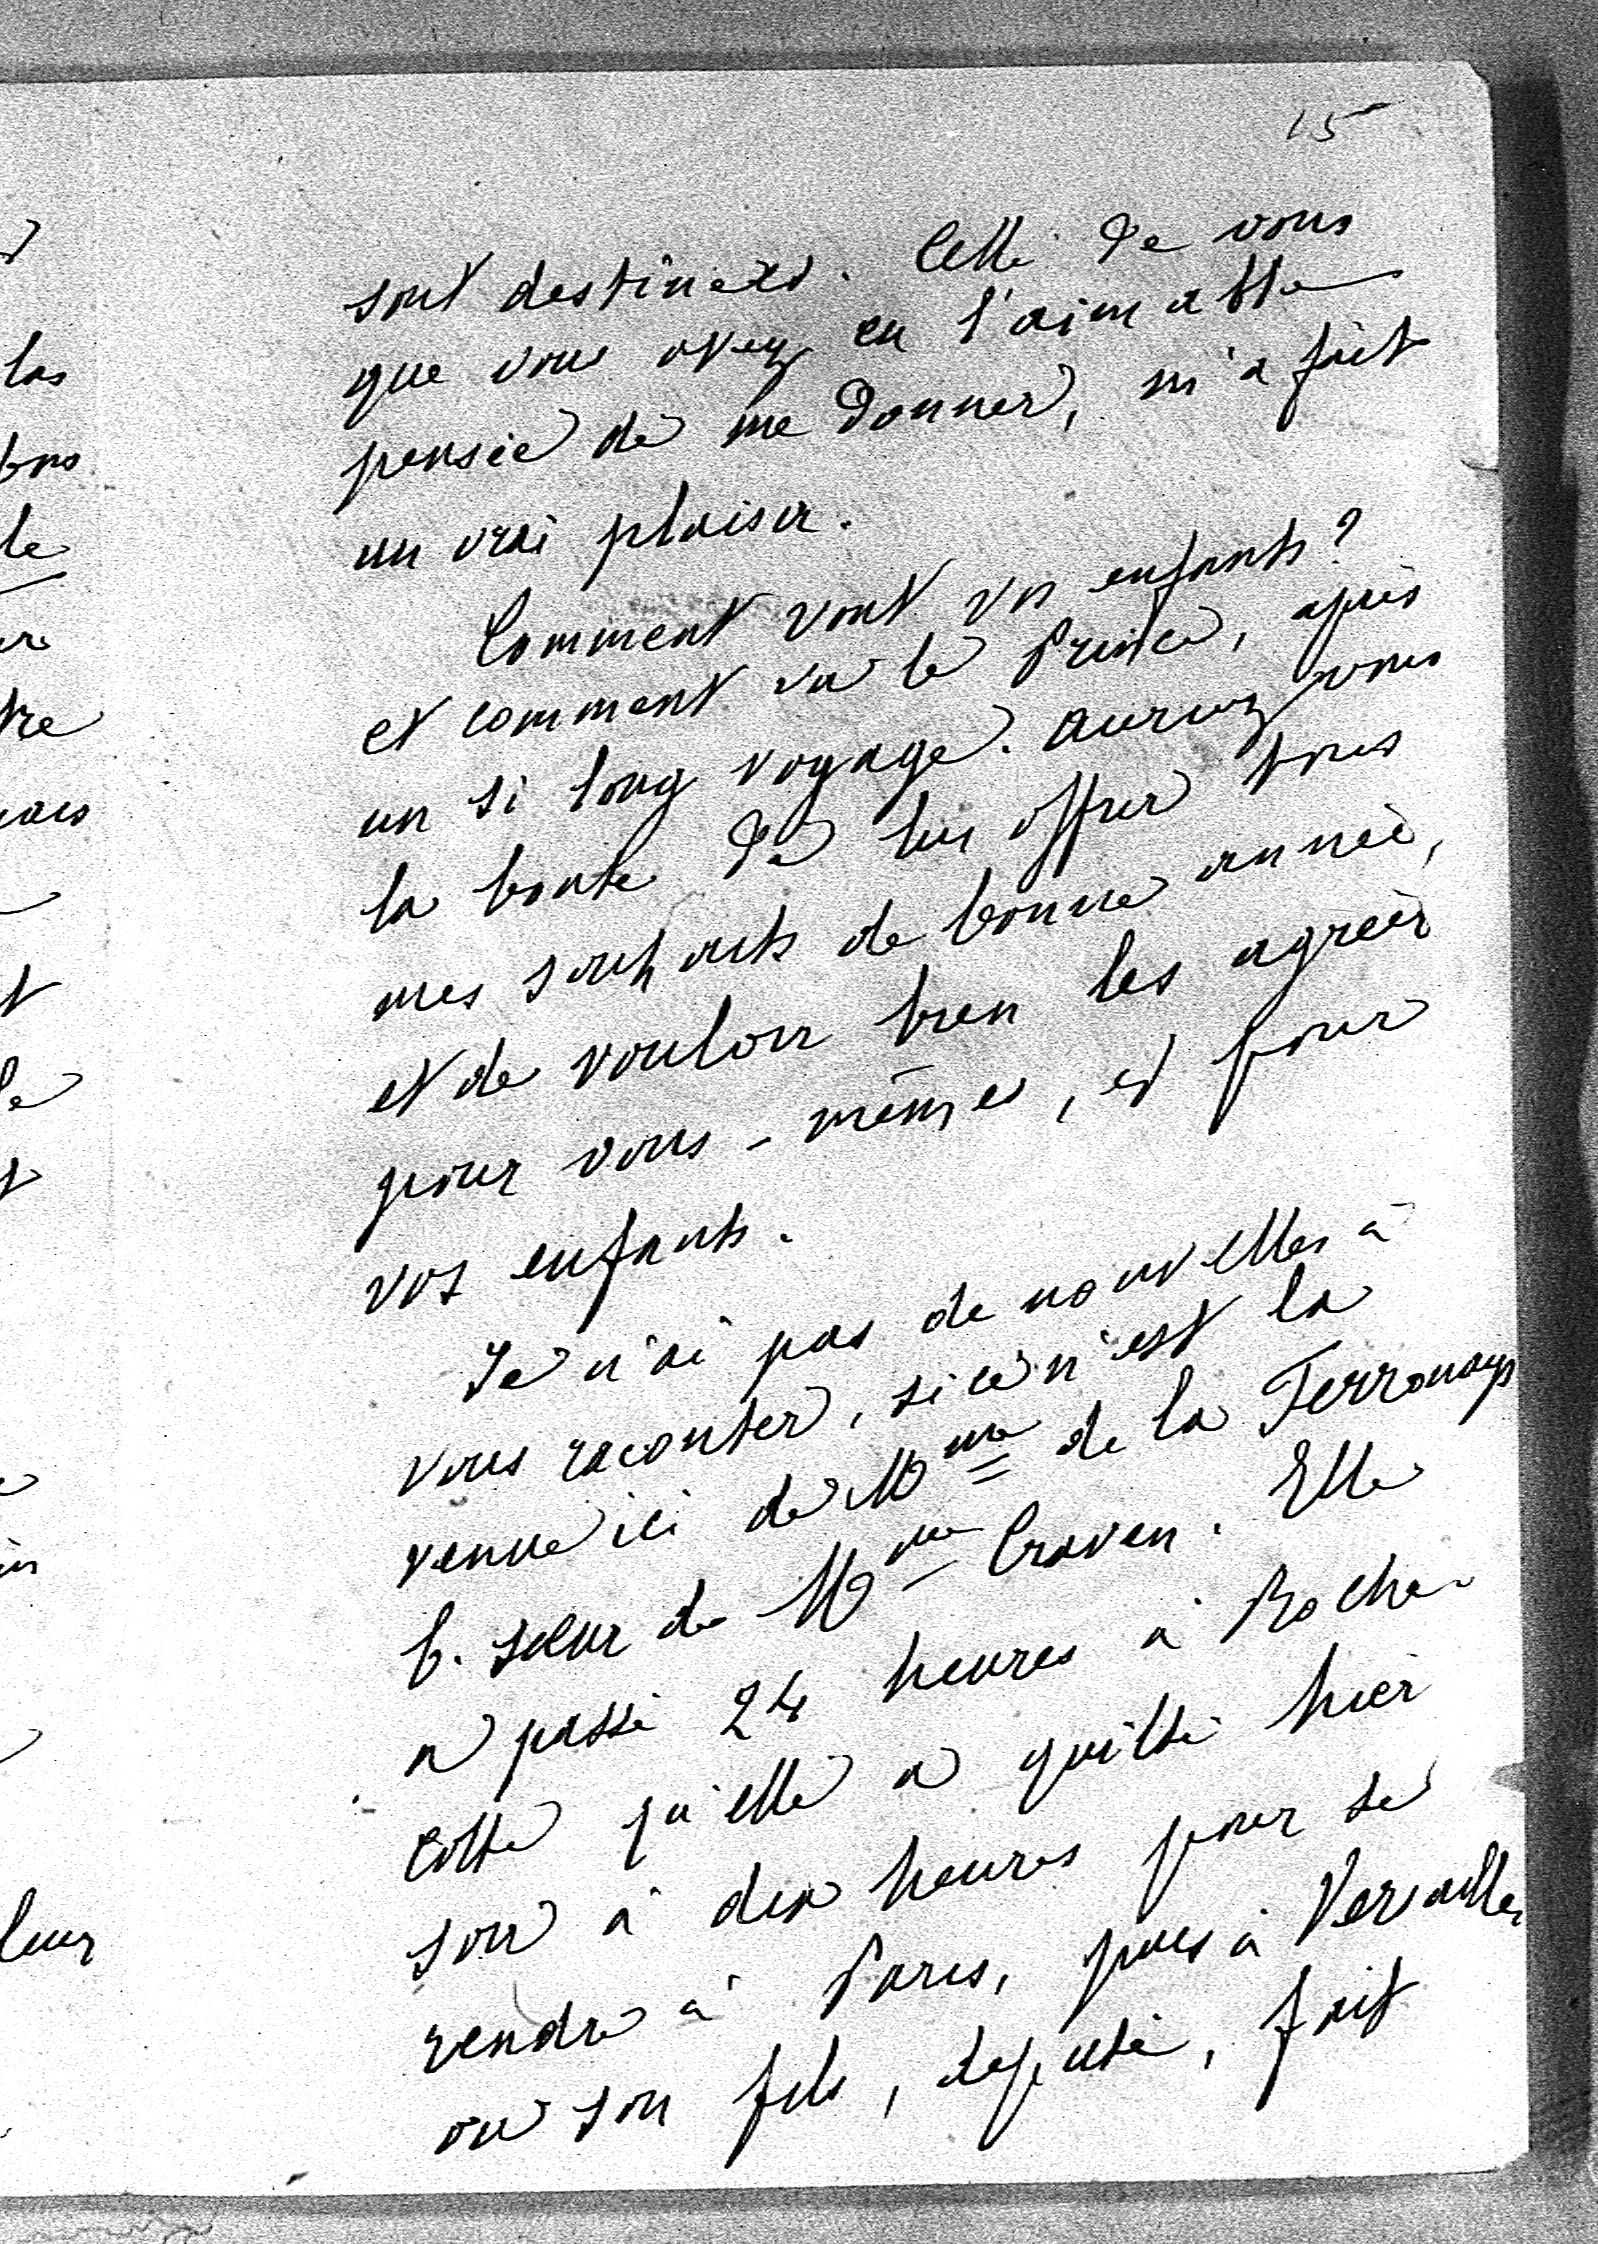 15
sont destinées. Celle de vous
que vous avez eu l'aimable
pensée de me donner, m'a fait
un vrai plaisir.
Comment vont vos enfants?
et comment va le Prince, après
un si long voyage. Auriez vous
la bonté de lui offrir tous
mes souhaits de bonne année,
et de vouloir bien les agréer
pour vous-mêmes, et pour
vos enfants.
Je n'ai pas de nouvelles à
vous raconter, si ce n'est la
venue ici de Mme de la Ferronays
b. sœur de Mme Craven. Elle
a passé 24 heures à Roche-
cotte qu'elle a quitté hier
soir à dix heures pour se
rendre à Paris, puis à Versailles
où son fils, député, fait